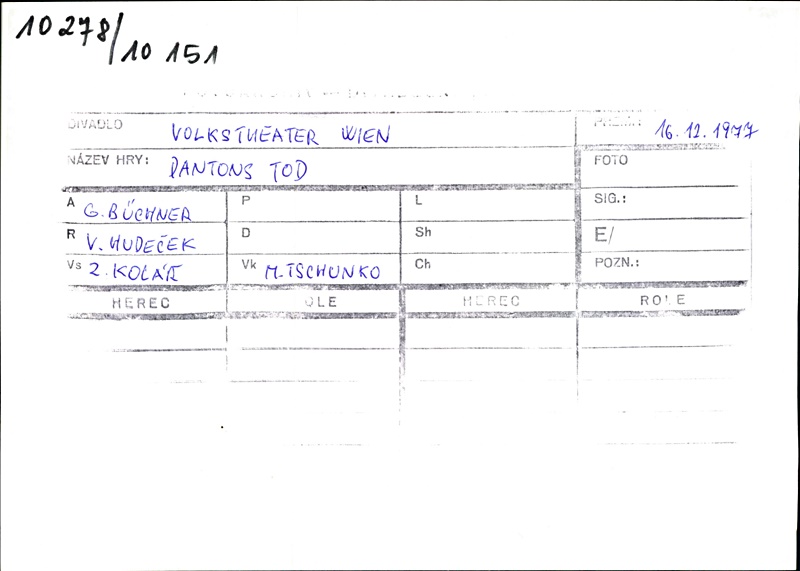 10 278/
10 151
DIVADLO VOLKSTHEATER WIEN 16.12.1977
NÁZEV HRY: DANTONS TOD FOTO
A G. BÜCHNER P L SIG.:
R V. HUDEČEK D Sh E/
Vs Z. KOLÁŘ Vk M. TSCHUNKO Ch POZN.:
HEREC ROLE HEREC ROLE